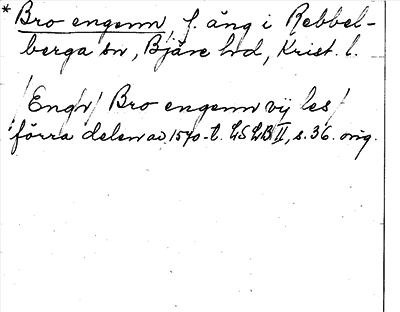 * Bro engenn, f. äng i Rebbel-
berga sn, Bjäre hd, Krist. l.
/Engh/ Bro engenn vij les/
förra delen av 1570-t. LSLB II, s. 36. orig.